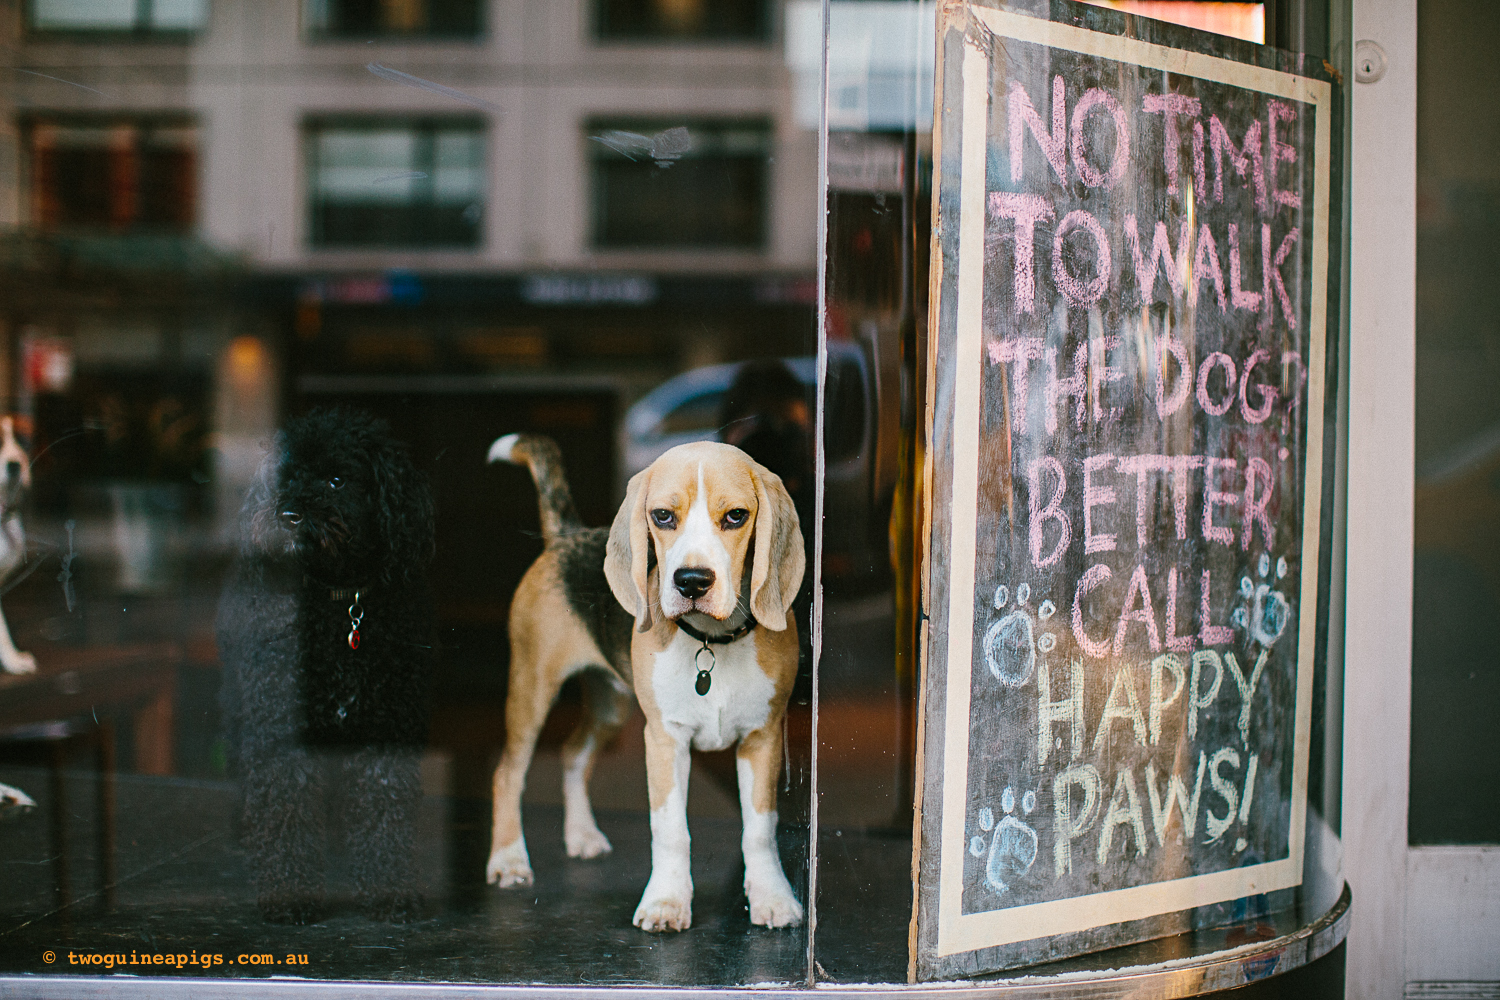 NO TIME
TO WALK
THE DOG?
BETTER
CALL
HAPPY
PAWS!
© twoguineapigs.com.au